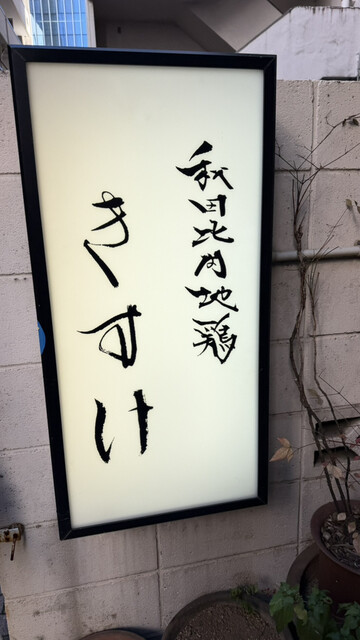 秋田比内地鶏
きすけ